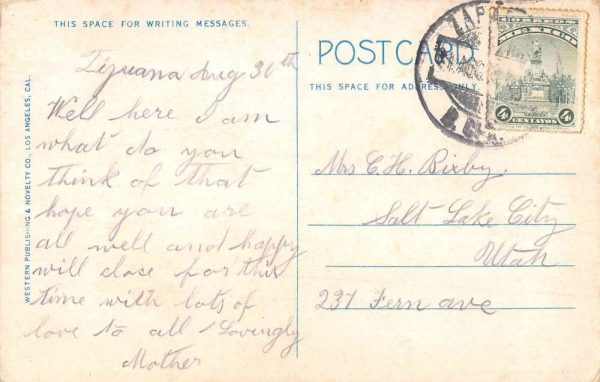 THIS SPACE FOR WRITING MESSAGES.
Tijuana Aug 30th
Well here i am
what do you
think of that
hope you are
all well and happy
will close for this
time with lots of
love to all Lovingly
Mother
WESTERN PUBLISHING & NOVELTY CO., LOS ANGELES, CAL.
POST CARD
THIS SPACE FOR ADDRESS ONLY.
CORREOS
MEXICO
4 CENTAVOS 4
B. CFA.
Mrs C. H. Bixby.
Salt Lake City
Utah
237 Fern ave